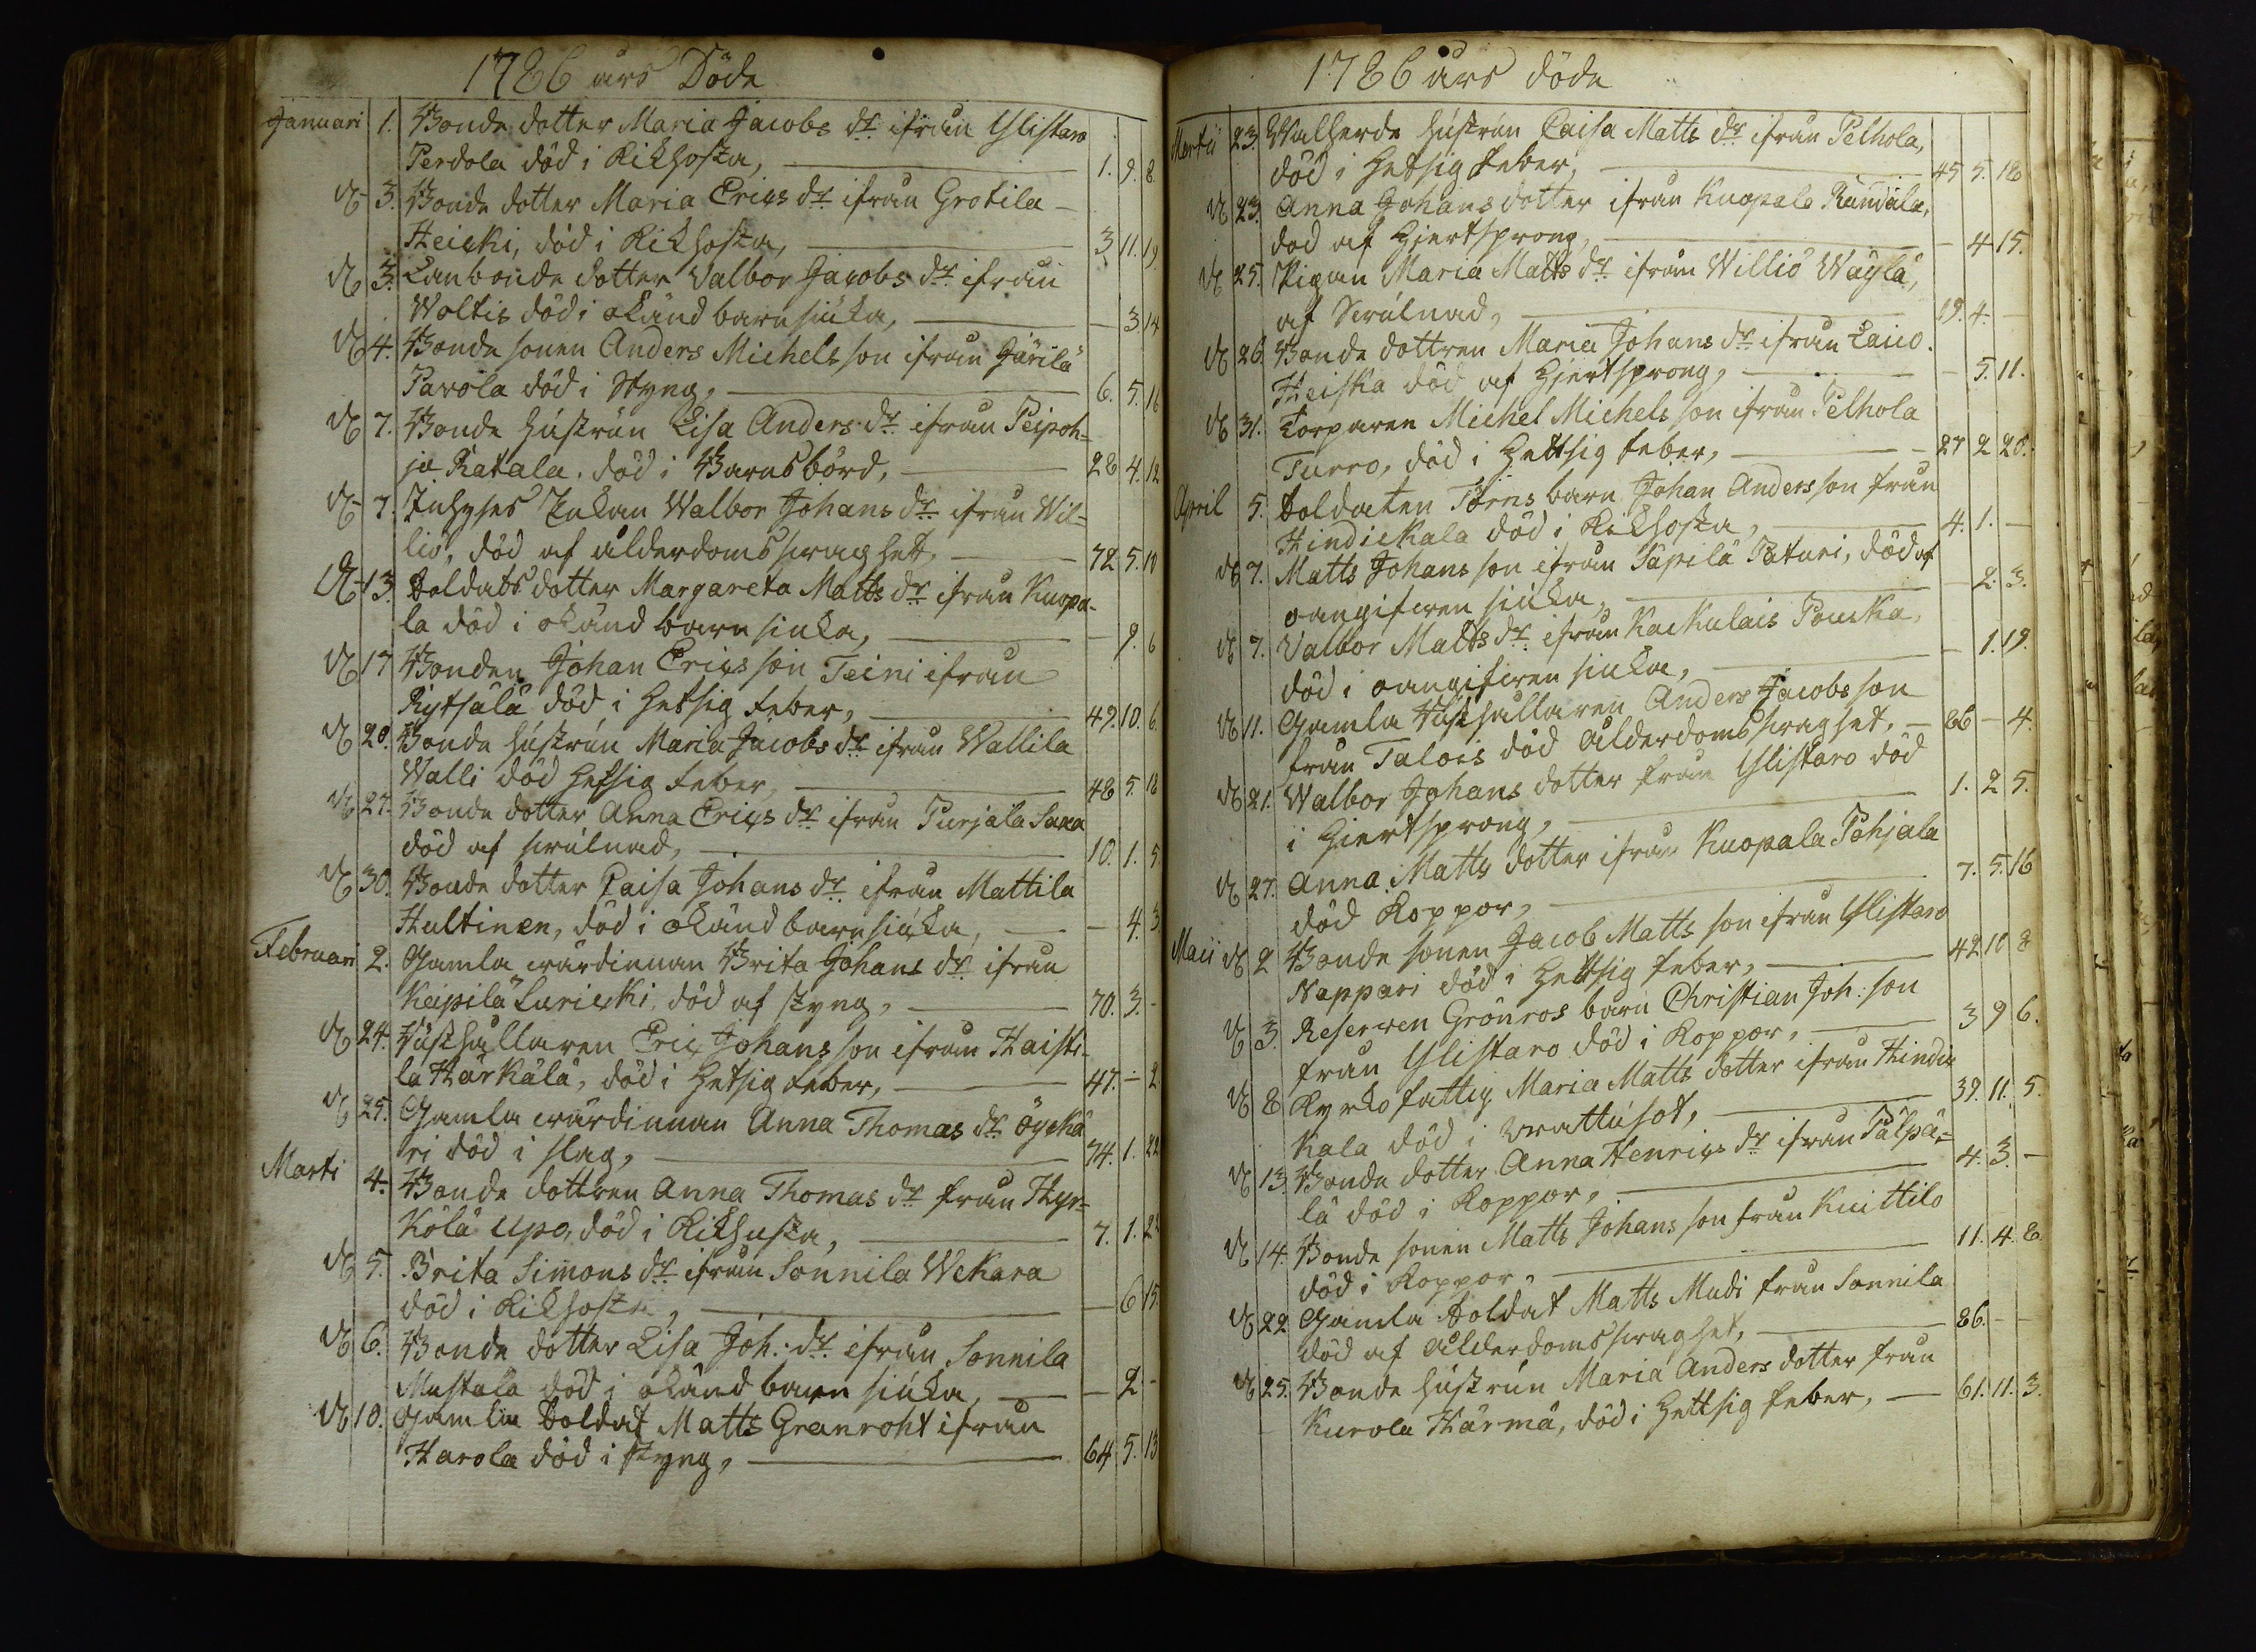 1786 års Döde
Januari 1. Bonde dotter Maria Jacobs dr ifrån Ylistaro
Perdola död i Kikhosta, 1. 9. 8
D 3. Bonde dotter Maria Erics dr ifrån Grotila
Heicki, död i Kikhosta, 3 11. 19.
D 3. Lanbonde dotter Valbor Jacobs dr ifrån
Woltis död i okänd barnsiuka, — 3. 14
D 4. Bonde sonen Anders Michels son ifrån Järilä
Parola död i Styng, 6. 5. 16
D 7. Bonde hustrun Lisa Anders dr ifrån Peipoh-
ja Ratala. död i Barnsbörd, 28 4. 12
D 7. Inhyses Enkan Walbor Johans dr ifrån Wil-
liö, död af ålderdoms swaghet, 72. 5. 10
D 13. Soldats dotter Margareta Matts dr ifrån Kuopa-
la död i okänd barn siuka, — 9. 6
D 17 Bonden Johan Erics son Teini ifrån
Rytsälä död i Hetsig feber, 49. 10. 6.
D 20. Bonde hustrun Maria Jacobs dr ifrån Wallila
Walli död Hetsig feber, 48 5. 18
D 27. Bonde dotter Anna Erics dr ifrån Purjala Saxa
död af swulnad, 10. 1. 5
D 30. Bonde dotter Caisa Johans dr ifrån Mattila
Hultinen, död i okänd barnsiuka, — 4. 3
Februari 2. Gamla wärdinnan Brita Johans dr ifrån
Keipilä Luricki, död af styng, 70. 3. -
D 24. Husthållaren Eric Johans son ifrån Haisti-
la Härkälä, död i Hetsig feber, 47. - 2
D 25. Gamla wärdinnan Anna Thomas dr öyckä
ri död i slag, 74. 1. 22
Marti 4. Bonde dottren Anna Thomas dr från Hyr-
kölä Upo, död i Kikhusta, 7. 1. 22
D 5. Brita Simons dr ifrån Sonnila Wekara
död i Kikhosta, — 6 15
D 6. Bonde dotter Lisa Joh: dr ifrån Sonnila
Mustala död i okänd barn siuka, — 2. -
D 10. Gamlin Soldat Matts Granroht ifrån
Harola död i styng, 64 5. 13
1786 års döde
Martii 23. Walherde hustrun Caisa Matts dr ifrån Pelhola,
död i Hetsig feber, 45 5. 18
D 23. Anna Johans dotter ifrån Kuopala Rundala,
död af Hjertsprong, — 4 15.
D 25. Pigan Maria Matts dr ifrån Williö Wäylä,
af Swulnad, 19. 4. -
D 26. Bonde dottren Maria Johans dr ifrån Laico.
Heiska död af Hjertsprong, — 5. 11.
D 31. Torparen Michel Michels son ifrån Pelhola
Turro, död i Hettsig feber, 27 2 20.
April 5. Soldaten Törns barn Johan Anders son från
Hindickala död i Kikhosta, 4. 1. -
D 7. Matts Johans son ifrån Säpilä Paturi, död af
oangifwen siuka, — 2. 3.
D 7. Valbor Matts dr ifrån Kackulais Pouska,
död i oangifwen siuka, — 1. 19.
D 11. Gamla Husthållaren Anders Jacobs son
från Talois död ålderdoms swaghet, 86 - 4.
D 21. Walbor Johans dotter från Ylistaro död
i Hiertsprong, 1. 2 5.
D 27. Anna Matts dotter ifrån Kuopala Pohjala
död Koppor, 7. 5. 16
Maii D 2 Bonde sonen Jacob Matts son ifrån Ylistaro
Nappari död i Hettsig feber, 42 10 8
D 3. Reserwen Grönros barn Christian Joh: son
från Ylistaro död i Koppor, 3 9 6.
D 8 Kyrko fattig Maria Matts dotter ifrån Hindic
kala död i Wattusot, 39. 11. 5.
D 13. Bonde dotter Anna Henrics dr ifrån Pälpä-
lä död i Koppor, 4. 3. -
D 14. Bonde sonen Matts Johans son från Kuittilo
död i Koppor, 11. 4. 8.
D 22 Gamla Soldat Matts Mudi från Sonnila
död af ålderdoms swaghet, 86. - -
D 25. Bonde hustrun Maria Anders dotter från
Kurola Härmä, död i Hettsig feber, 61. 11. 3.